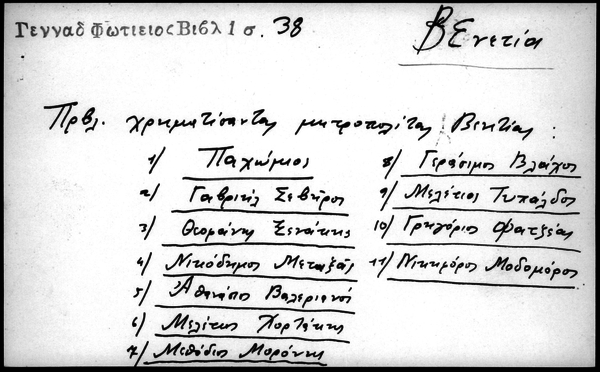 Γενναδ Φωτιειος Βιβλ 1 σ. 38
Βενετία
Πρβλ. χρηματίσαντας μητροπολίτας Βενετίας :
1/ Παχώμιος
2/ Γαβριήλ Σεβῆρος
3/ Θεοφάνης Ξενάκης
4/ Νικόδημος Μεταξᾶς
5/ Ἀθανάσιος Βαλεριανός
6/ Μελέτιος Χορτάκης
7/ Μεθόδιος Μορώνης
8/ Γεράσιμος Βλάχος
9/ Μελέτιος Τυπάλδος
10/ Γρηγόριος Φατζέας
11/ Νικηφόρος